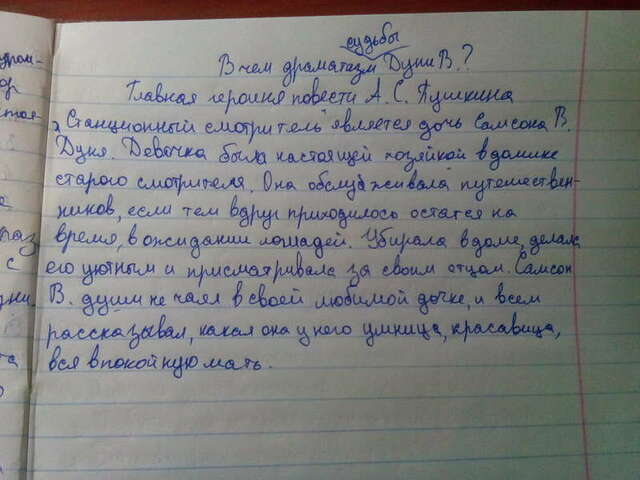 судьбы
В чем драматизм Дуни В.?
Главная героиня повести А. С. Пушкина
„Станционный смотритель" является дочь Самсона В.
Дуня. Девочка была настоящей хозяйкой в домике
старого смотрителя. Она обслуживала путешествен-
ников, если тем вдруг приходилось остатся на
время, в ожидании лошадей. Убирала в доме, делала
его уютным и присматривала за своим отцом. Самсон
В. души не чаял в своей любимой дочке, и всем
рассказывал, какая она у него умница, красавица,
вся в покойную мать.